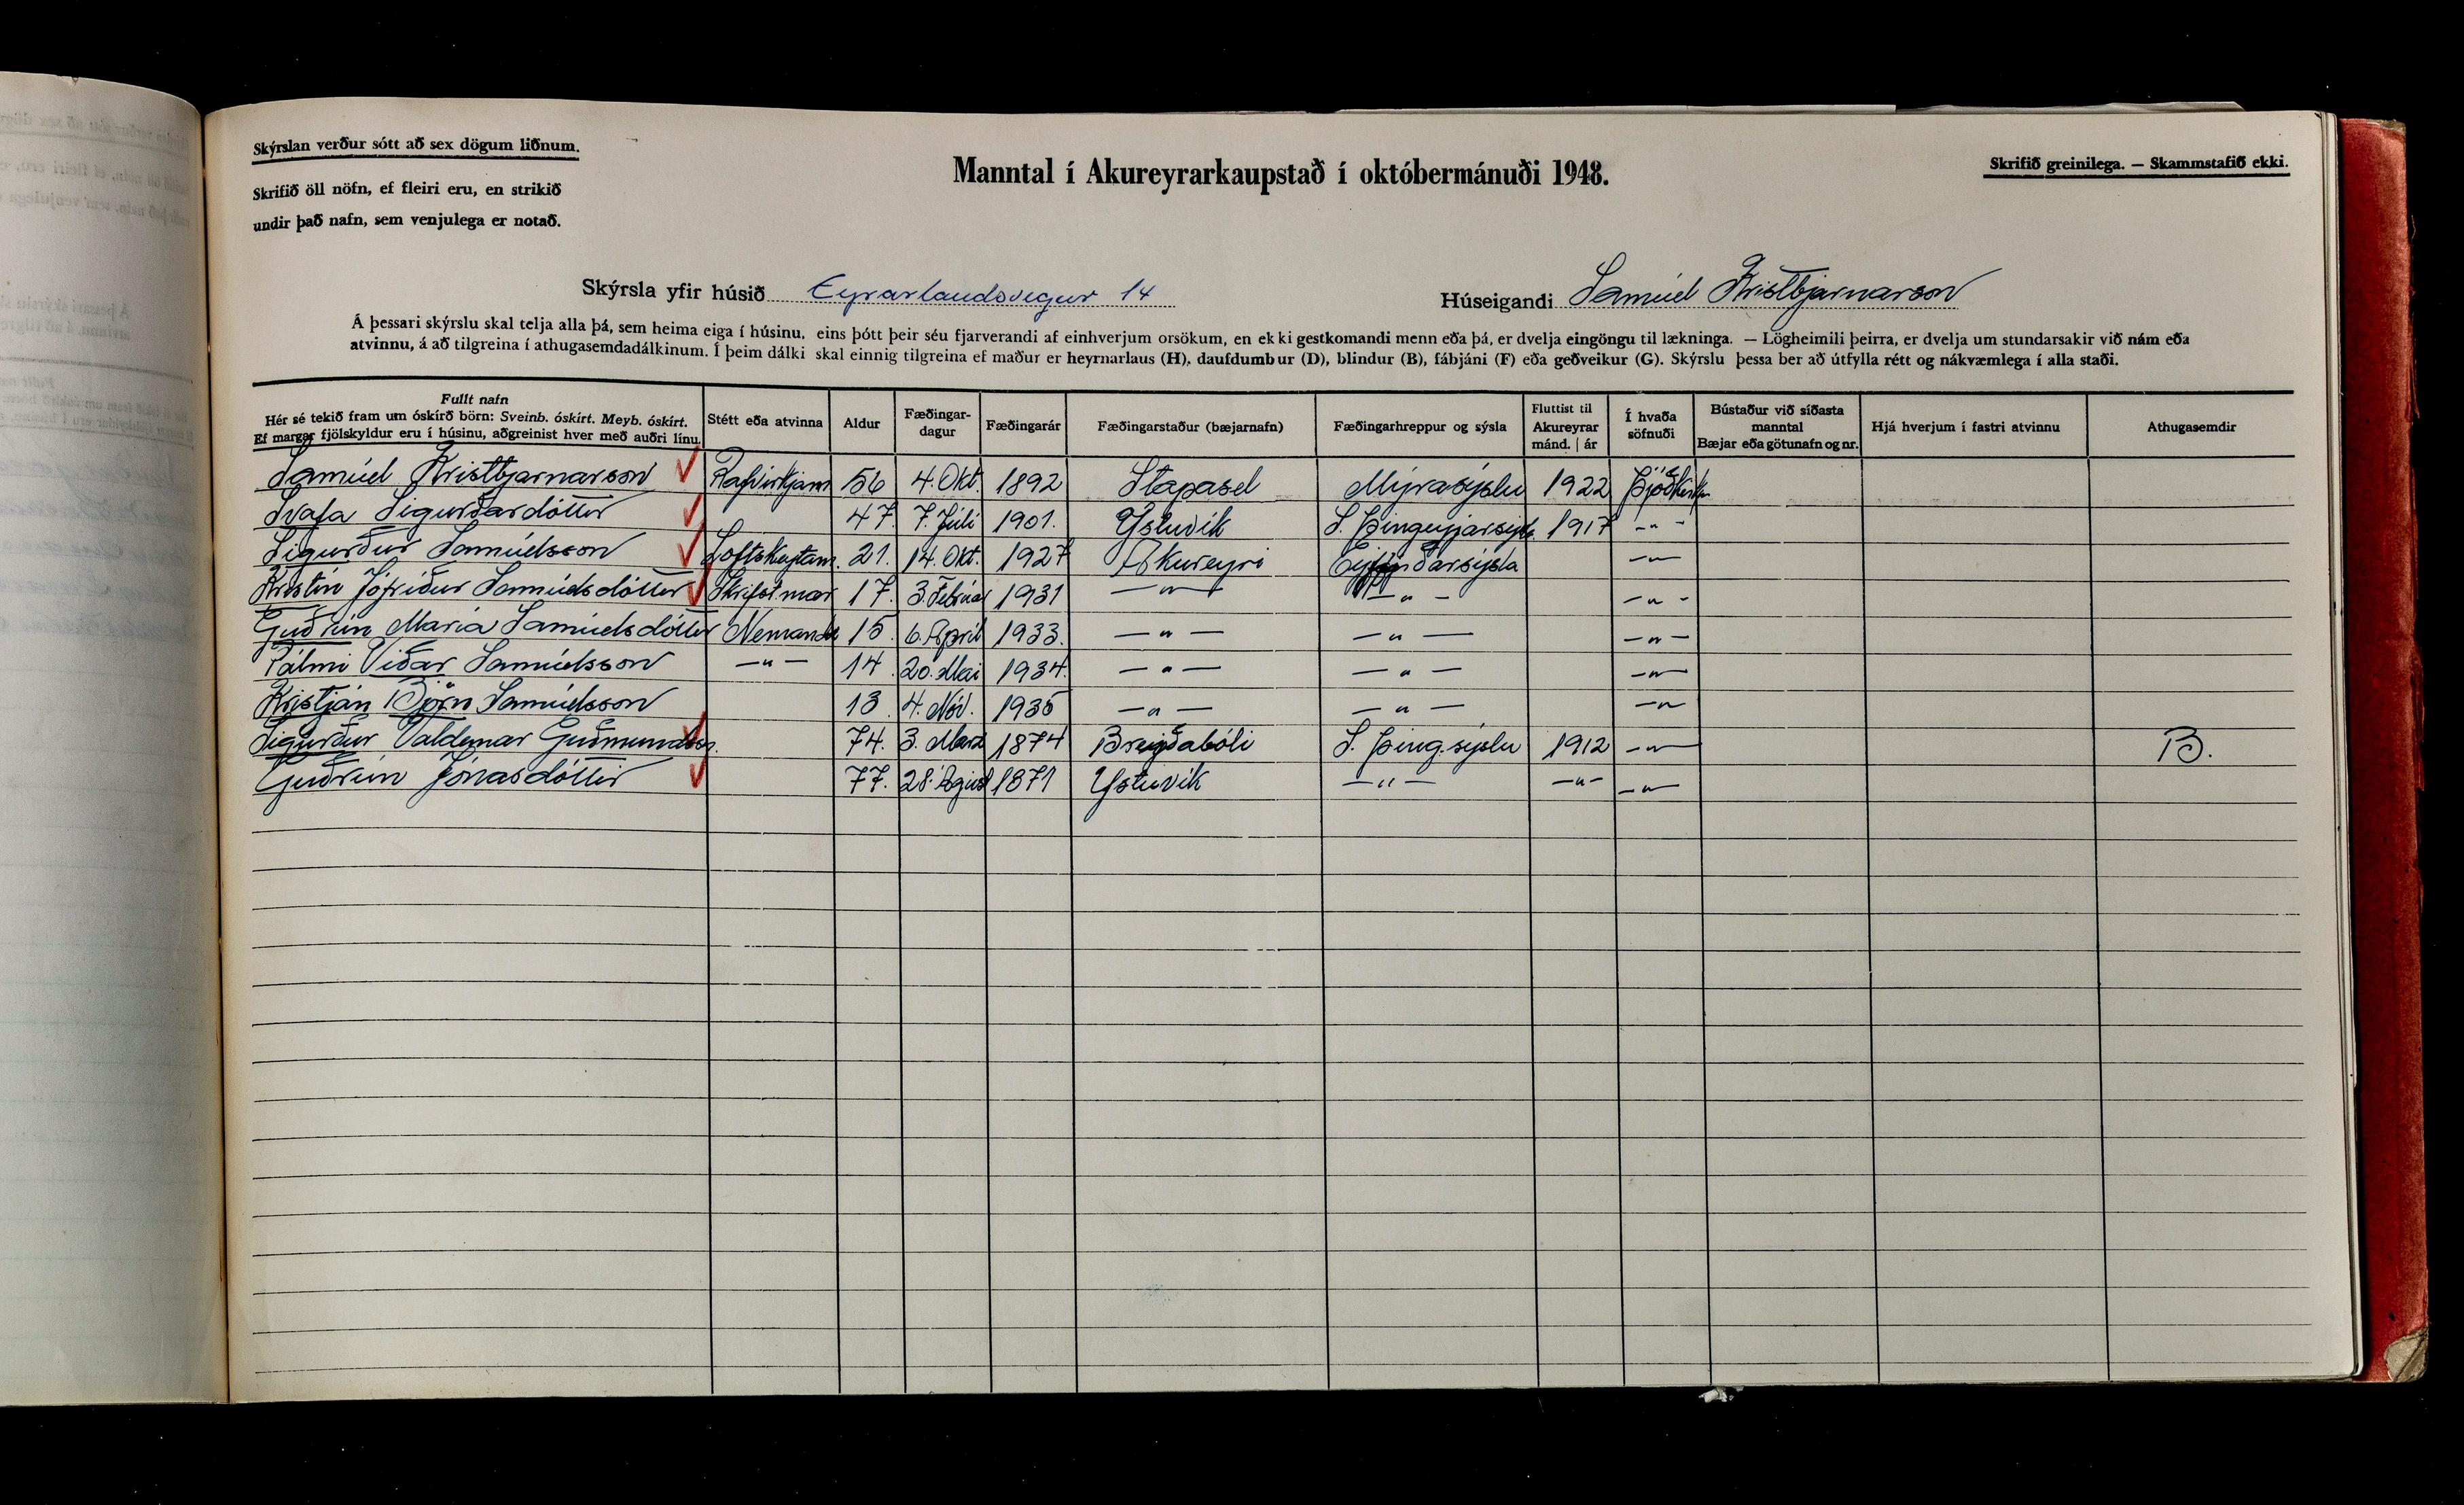 Skýrslan verður sótt að sex dögum liðnum.
Skrifið öll nöfn, ef fleiri eru, en strikið
undir það nafn, sem venjulega er notað.
Manntal í Akureyrarkaupstað í októbermánuði 1948.
Skrifið greinilega. — Skammstafið ekki.
Skýrsla yfir húsið Eyrarlandsvegur 14
Húseigandi Samúel Kristbjarnarson
Á þessari skýrslu skal telja alla þá, sem heima eiga í húsinu, eins þótt þeir séu fjarverandi af einhverjum orsökum, en ekki gestkomandi menn eða þá, er dvelja eingöngu til lækninga. — Lögheimili þeirra, er dvelja um stundarsakir við nám eða
atvinnu, á að tilgreina í athugasemdadálkinum. Í þeim dálki skal einnig tilgreina ef maður er heyrnarlaus (H), daufdumbur (D), blindur (B), fábjáni (F) eða geðveikur (G). Skýrslu þessa ber að útfylla rétt og nákvæmlega í alla staði.
Fullt nafn
Hér sé tekið fram um óskírð börn: Sveinb. óskírt. Meyb. óskírt.
Ef margar fjölskyldur eru í húsinu, aðgreinist hver með auðri línu.
Stétt eða atvinna
Aldur
Fæðingar-
dagur
Fæðingarár
Fæðingarstaður (bæjarnafn)
Fæðingarhreppur og sýsla
Fluttist til
Akureyrar
mánd. | ár
Í hvaða
söfnuði
Bústaður við síðasta
manntal
Bæjar eða götunafn og nr.
Hjá hverjum í fastri atvinnu
Athugasemdir
Samúel Kristbjarnarson Rafvirkjam 56 4. Okt. 1892 Stapasel Mýrasýslu 1922 Þjóðkirkju
Svafa Sigurðardóttir 47. 7. Júlí 1901. Ystuvík S. Þingeyjarsýslu 1917 -"-
Sigurður Samúelsson Loftskeytam. 21. 14. Okt. 1927 Akureyri Eyjafjarðarsýsla -"-
Kristín Jófríður Samúelsdóttir Skrifstmær 17. 3. Febrúar 1931 —"— —"— -"-
Guðrún María Samúelsdóttir Nemandi 15. 6. Apríl 1933. —"— —"— -"-
Pálmi Viðar Samúelsson —"— 14. 20. Maí 1934. —"— —"— -"-
Kristján Björn Samúelsson 13 4. Nóv. 1935 —"— —"— -"-
Sigurður Valdemar Guðmundsson. 74. 3. Marz 1874 Breiðabóli S. Þing.sýslu 1912 -"- B.
Guðrún Jónasdóttir 77. 28. Ágúst 1871 Ystuvík —"— -"- -"-